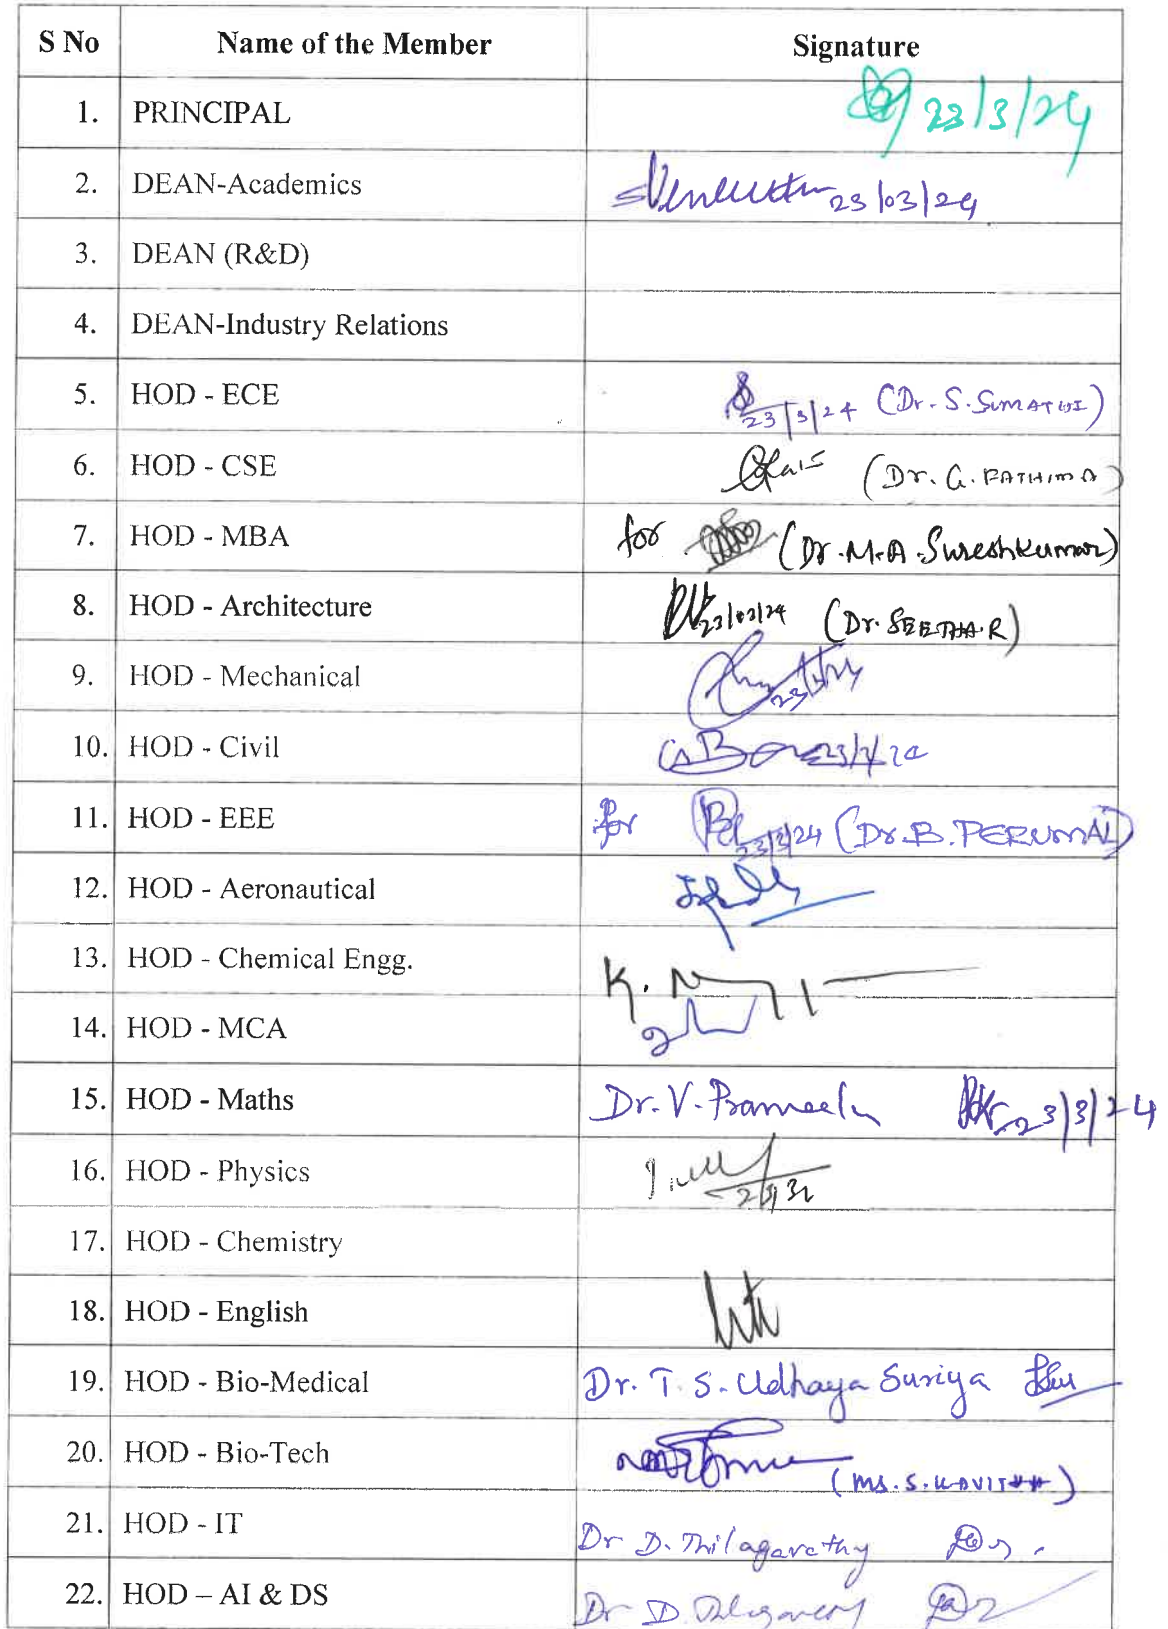 S No Name of the Member Signature
1. PRINCIPAL 23/3/24
2. DEAN-Academics 23/03/24
3. DEAN (R&D)
4. DEAN-Industry Relations
5. HOD - ECE 23/3/24 (Dr. S. SUMATHI)
6. HOD - CSE (Dr. G. FATHIMA)
7. HOD - MBA for (Dr. M.A. Sureshkumar)
8. HOD - Architecture 23/03/24 (Dr. SEETHA.R)
9. HOD - Mechanical
10. HOD - Civil 23/3/24
11. HOD - EEE for 23/3/24 (Dr. B. PERUMAL)
12. HOD - Aeronautical
13. HOD - Chemical Engg. K.
14. HOD - MCA
15. HOD - Maths Dr. V. Prameela 23/3/24
16. HOD - Physics
17. HOD - Chemistry
18. HOD - English
19. HOD - Bio-Medical Dr. T. S. Udhaya Suriya
20. HOD - Bio-Tech (Ms. S. KAVITHA)
21. HOD - IT Dr D. Thilagavathy
22. HOD – AI & DS Dr D.